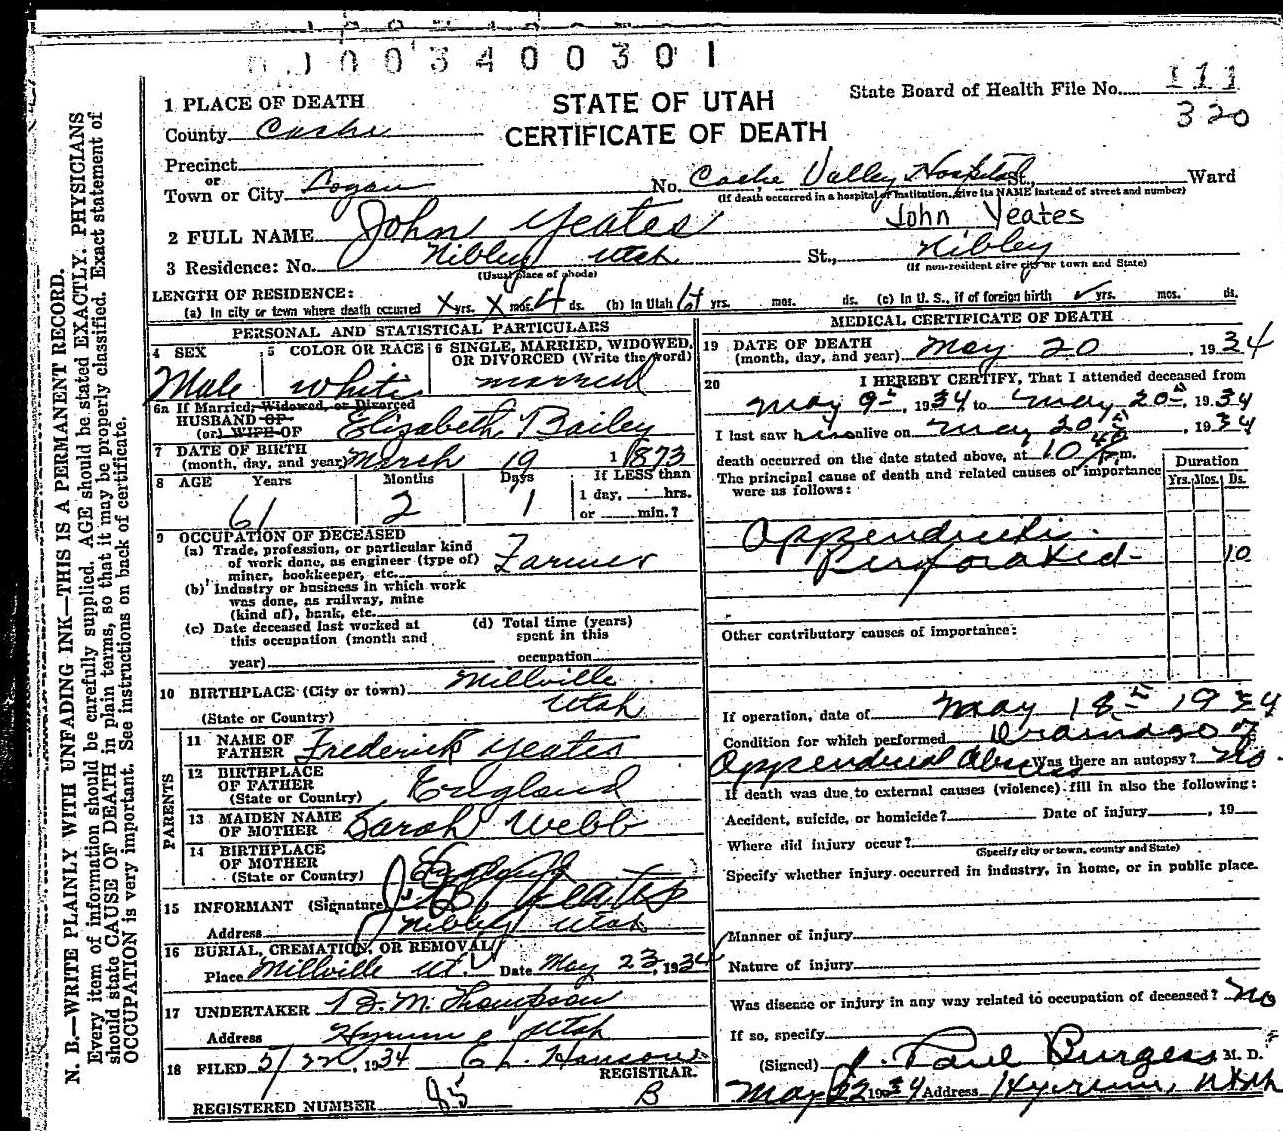 1003400301
1 PLACE OF DEATH
STATE OF UTAH
CERTIFICATE OF DEATH
State Board of Health File No. 111
320
County Cache
Precinct
or
Town or City Logan No. Cache Valley Hospital St., Ward
(If death occurred in a hospital or institution, give its NAME instead of street and number)
2 FULL NAME John Yeates John Yeates
3 Residence: No. Nibley Utah St., Nibley
(Usual place of abode) (If non-resident give city or town and State)
LENGTH OF RESIDENCE:
(a) In city or town where death occurred X yrs. X mos. 4 ds. (b) In Utah 61 yrs. mos. ds. (c) In U. S., if of foreign birth ✓ yrs. mos. ds.
PERSONAL AND STATISTICAL PARTICULARS
4 SEX 5 COLOR OR RACE 6 SINGLE, MARRIED, WIDOWED, OR DIVORCED (Write the word)
Male White married
6a If Married, Widowed, or Divorced
HUSBAND OF
(or) WIFE OF Elizabeth Bailey
7 DATE OF BIRTH
(month, day, and year) March 19 1873
8 AGE Years Months Days If LESS than
1 day, hrs.
or min.?
61 2 1
9 OCCUPATION OF DECEASED
(a) Trade, profession, or particular kind
of work done, as engineer (type of)
miner, bookkeeper, etc. Farmer
(b) Industry or business in which work
was done, as railway, mine
(kind of), bank, etc.
(c) Date deceased last worked at
this occupation (month and
year)
(d) Total time (years)
spent in this
occupation
10 BIRTHPLACE (City or town) Millville
(State or Country) Utah
PARENTS
11 NAME OF
FATHER Frederick Yeates
12 BIRTHPLACE
OF FATHER
(State or Country) England
13 MAIDEN NAME
OF MOTHER Sarah Webb
14 BIRTHPLACE
OF MOTHER
(State or Country) England
15 INFORMANT (Signature) Yeates
Address Nibley Utah
16 BURIAL, CREMATION, OR REMOVAL
Place Millville Ut. Date May 23, 1934
17 UNDERTAKER B. M. Thompson
Address Hyrum Utah
18 FILED 5/22, 1934
REGISTRAR.
REGISTERED NUMBER 85 B
MEDICAL CERTIFICATE OF DEATH
19 DATE OF DEATH
(month, day, and year) May 20, 1934
20 I HEREBY CERTIFY, That I attended deceased from
May 9th, 1934 to May 20th, 1934
I last saw him alive on May 20th, 1934
death occurred on the date stated above, at 10 40 m.
The principal cause of death and related causes of importance
were as follows:
Duration
Yrs. Mos. Ds.
Appendicitis
Perforated - 10
Other contributory causes of importance:
If operation, date of May 18th 1934
Condition for which performed Drainage of
Appendical Abscess Was there an autopsy? No
If death was due to external causes (violence) fill in also the following:
Accident, suicide, or homicide? Date of injury , 19
Where did injury occur?
(Specify city or town, county and State)
Specify whether injury occurred in industry, in home, or in public place.
Manner of injury
Nature of injury
Was disease or injury in any way related to occupation of deceased? No
If so, specify
(Signed) J. Paul Burgess M. D.
May 22 1934 Address Hyrum, Utah
N. B.—WRITE PLAINLY WITH UNFADING INK—THIS IS A PERMANENT RECORD.
Every item of information should be carefully supplied. AGE should be stated EXACTLY. PHYSICIANS
should state CAUSE OF DEATH in plain terms, so that it may be properly classified. Exact statement of
OCCUPATION is very important. See instructions on back of certificate.